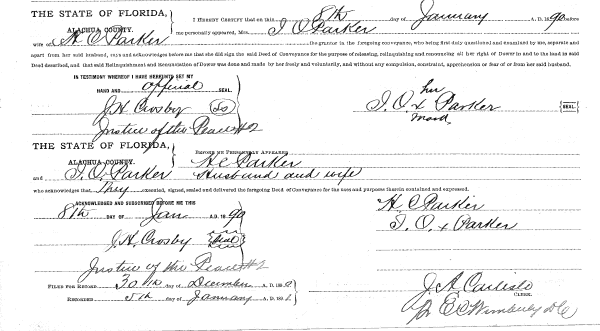 THE STATE OF FLORIDA,
ALACHUA COUNTY.
I HEREBY CERTIFY that on this 8th day of January A. D. 1890 before
me personally appeared, Mrs. I O Parker
wife of H. C. Parker the grantor in the foregoing conveyance, who being first duly questioned and examined by me, separate and
apart from her said husband, says and acknowledges before me that she did sign the said Deed of Conveyance for the purpose of releasing, relinquishing and renouncing all her right of Dower in and to the land in said
Deed described, and that said Relinquishment and Renunciation of Dower was done and made by her freely and voluntarily, and without any compulsion, constraint, apprehension or fear of or from her said husband.
IN TESTIMONY WHEREOF I HAVE HEREUNTO SET MY
HAND AND official SEAL.
J. H. Crosby
Justice of the Peace #2
her
I. O. x Parker
mark
SEAL
THE STATE OF FLORIDA,
ALACHUA COUNTY.
BEFORE ME PERSONALLY APPEARED
H C Parker
and I. O. Parker Husband and wife
who acknowledges that They executed, signed, sealed and delivered the foregoing Deed of Conveyance for the uses and purposes therein contained and expressed.
ACKNOWLEDGED AND SUBSCRIBED BEFORE ME THIS
8th DAY OF Jan A. D. 1890
J. H. Crosby Seal
Justice of the Peace #2
H. C Parker
I. O. x Parker
FILED FOR RECORD 30th day of December A.D. 1890
RECORDED 5th day of January A.D. 1891
J. A. Carlisle
CLERK.
E C Wimberly D C